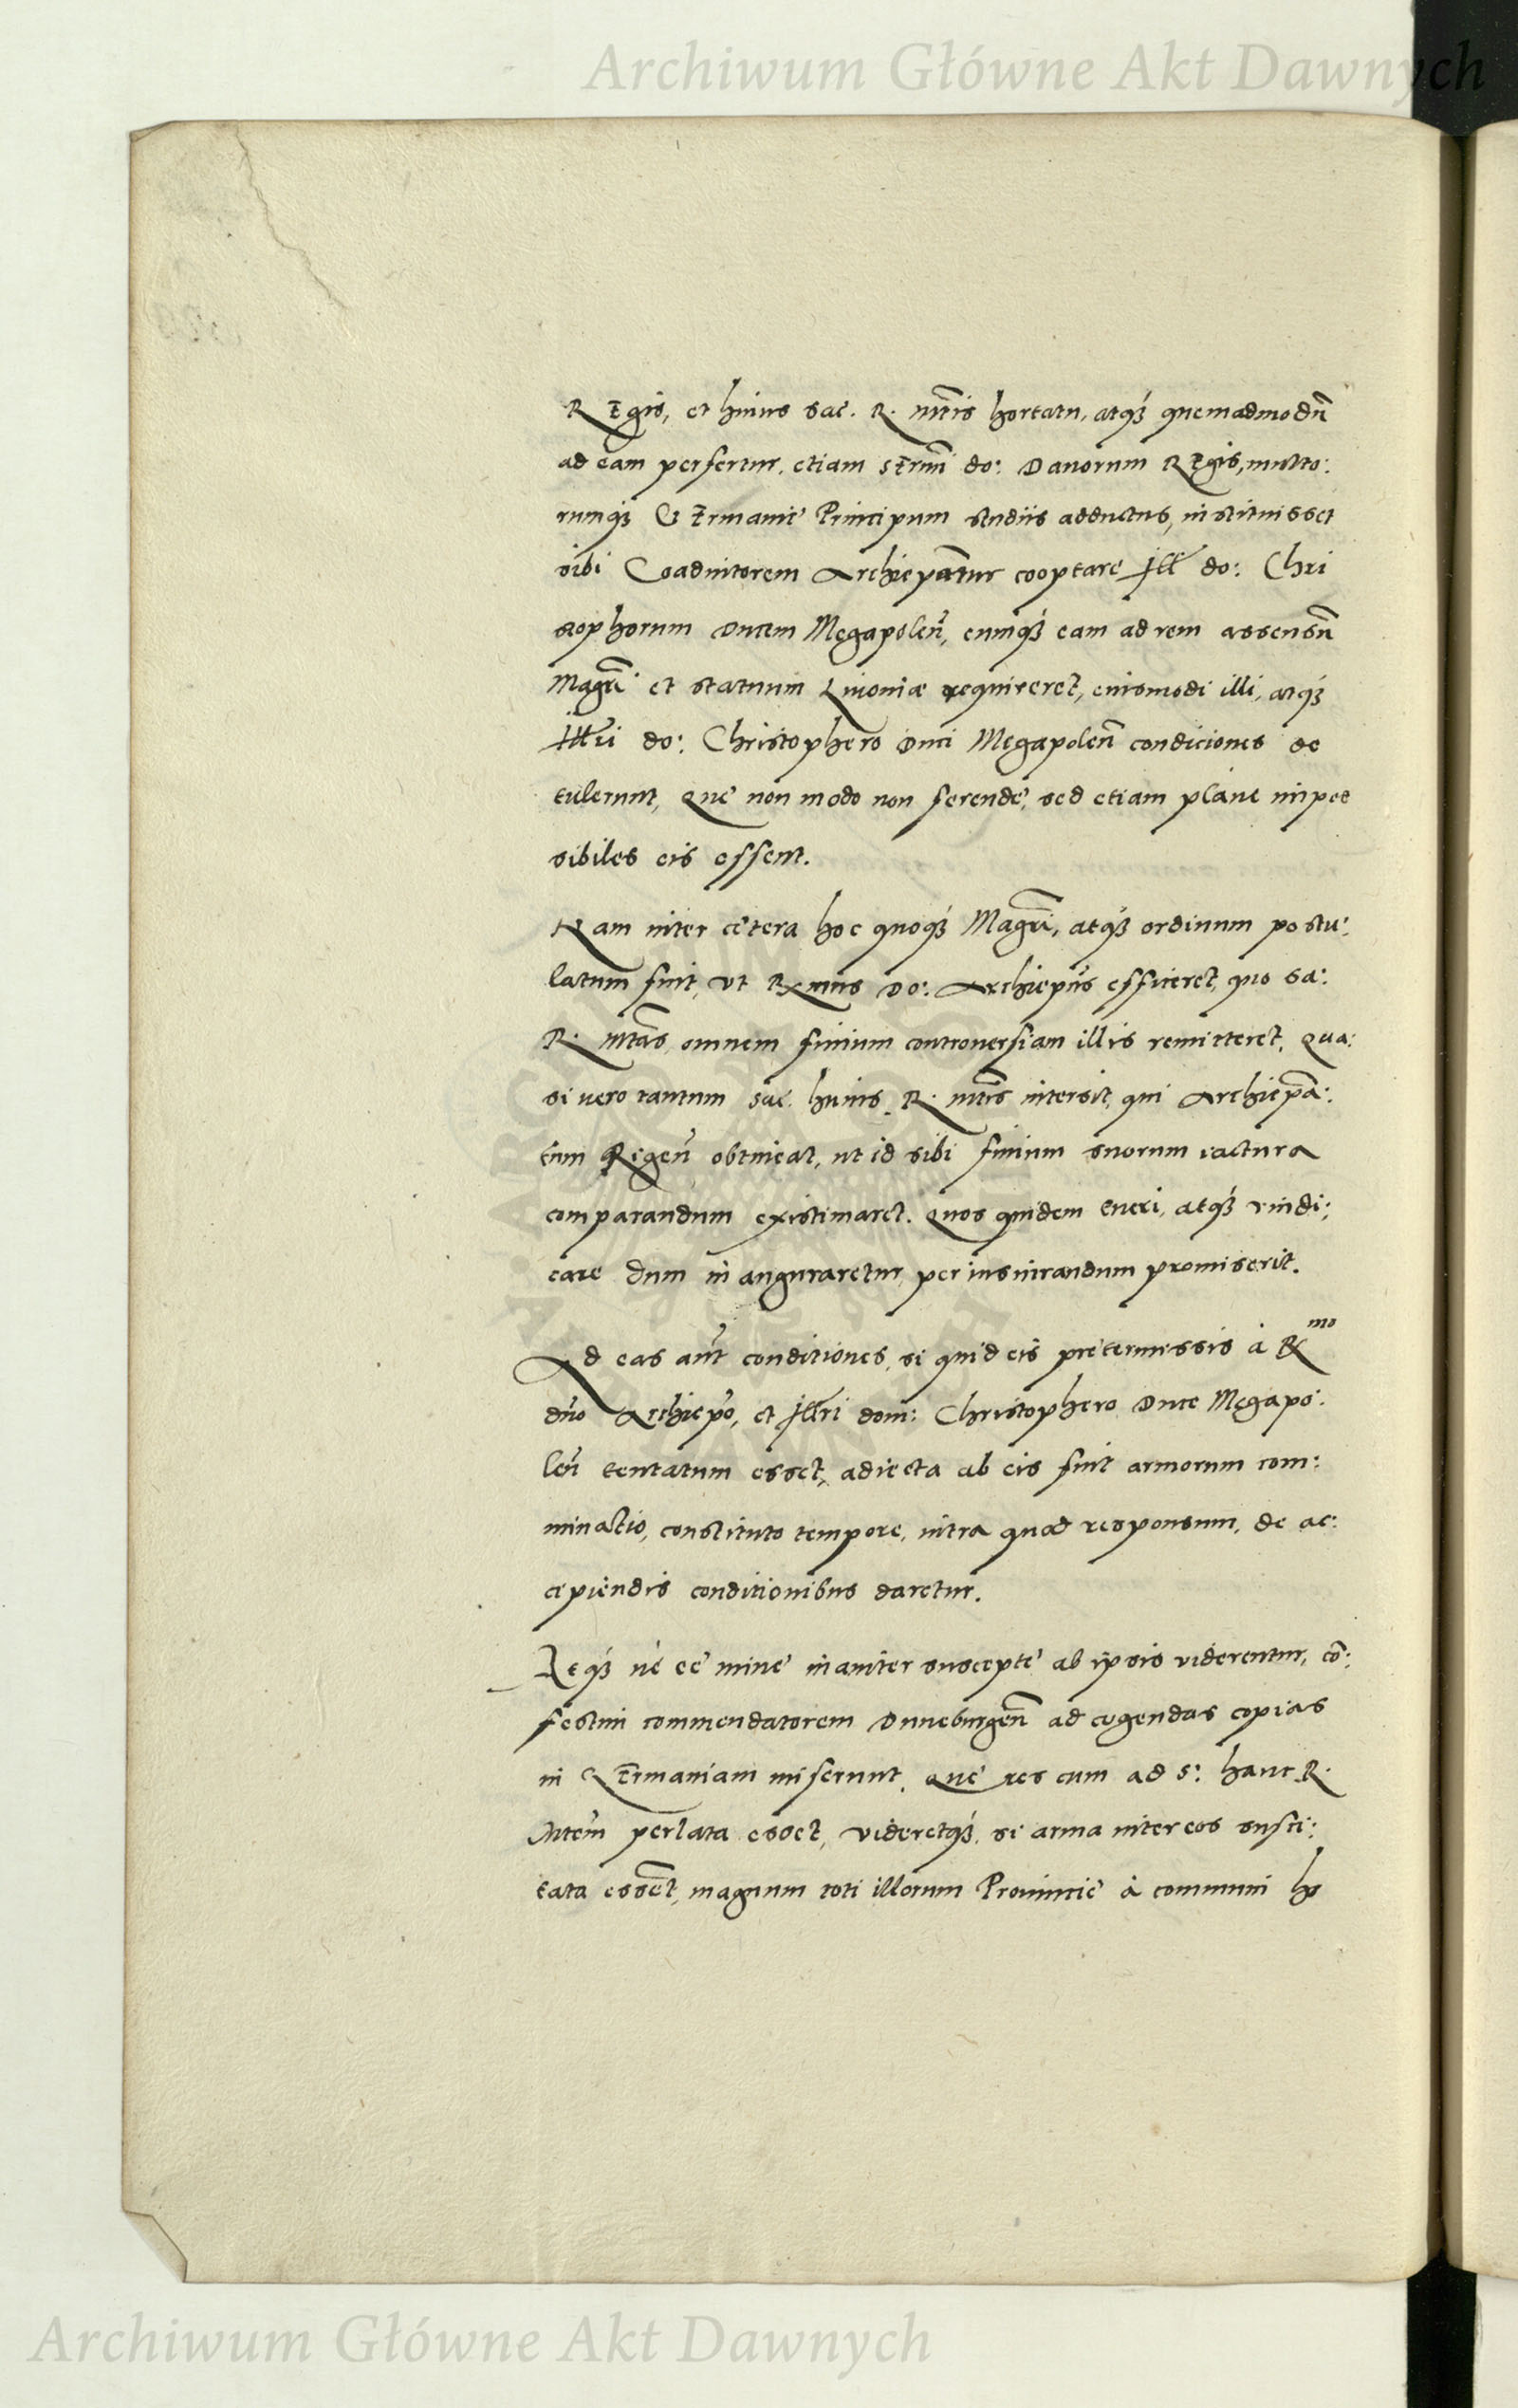 Archiwum Główne Akt Dawnych
Regis, et huius sac. R. mtis hortatu, atq́ꝫ quemadmodū
ad eam perfertur, etiam Sermi do: Danorum Regis, multo:
rumq́ꝫ Germanie Principum studiis adductus, instituisset
sibi Coadiutorem Archiepatur cooptare Ill do: Chri
stophorum Ducem Megapoleñ, eumq́ꝫ eam ad rem assensū
Magri et statuum Livoniæ requireret, eiusmodi illi, atq́ꝫ
Illri do: Christophero Duci Megapoleñ condiciones de
tulerunt, que non modo non ferende, sed etiam plane impos
sibiles eis essent.
Nam inter cetera hoc quoq́ꝫ Magri, atq́ꝫ ordinum postu:
latum fuit, ut Rxmus Do: Archiepus efficeret, quo sa:
R. mtas, omnem finium controuersiam illis remitteret, Qua:
si uero tantum sac. huius R. mtis intersit, qui Archiepa:
tum Rigeñ obtineat, ut id sibi finium suorum iactura
comparandum existimaret. Quos quidem tueri, atq́ꝫ vindi:
care dum inauguraretur, per iusiurandum promiserit.
Ad eas aut conditiones, si quid eis pretermissis à Rmo
dno Archiepo, et Illri dom: Christophero Duce Megapo:
leñ tentatum esset, adiecta ab eis fuit armorum com:
minatio, constituto tempore, intra quod responsum, de ac:
cipiendis conditionibus daretur.
Atq́ꝫ ne ee mine inaniter suscepte ab ipsis viderentur, cō:
festim commendatorem Duneburgeñ ad cogendas copias
in Germaniam miserunt. Que res cum ad S: hanc R.
Mtem perlata esset, videretq́ꝫ, si arma inter eos susci:
tata essēt, magnum toti illorum Prouincie à communi ho
Archiwum Główne Akt Dawnych